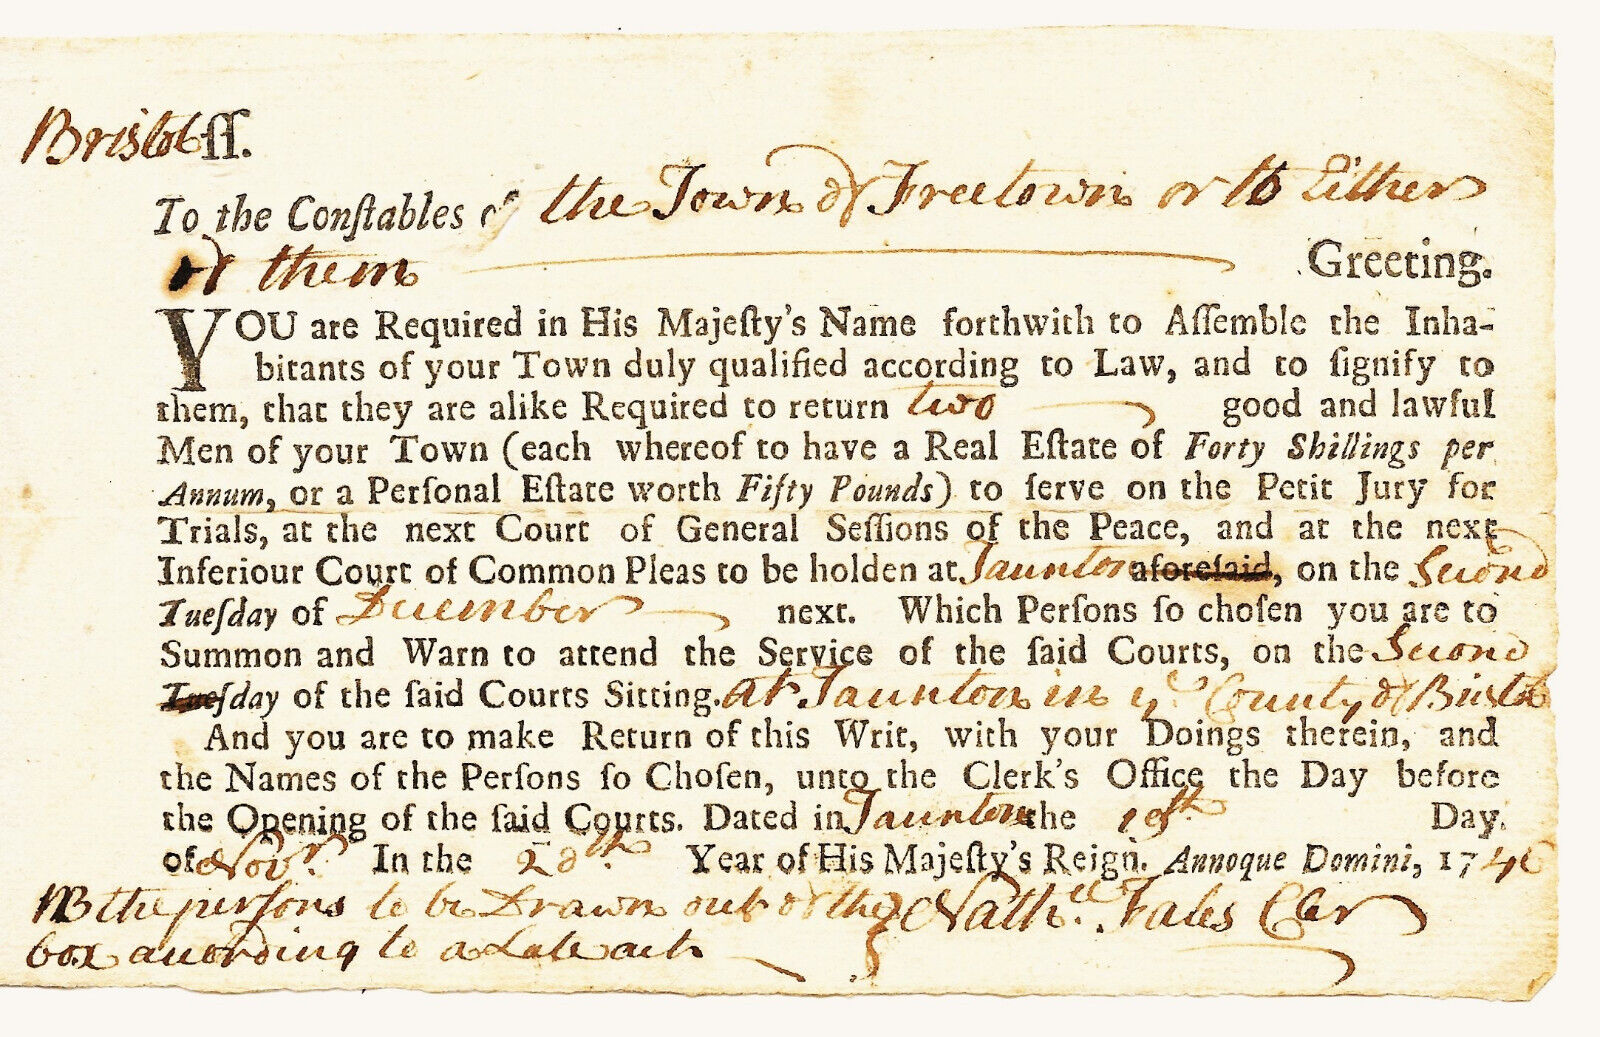 Bristol ſſ.
To the Conſtables of the Town of Freetown or to Either
of them Greeting.
YOU are Required in His Majeſty's Name forthwith to Aſſemble the Inha-
bitants of your Town duly qualified according to Law, and to ſignify to
them, that they are alike Required to return two good and lawful
Men of your Town (each whereof to have a Real Eſtate of Forty Shillings per
Annum, or a Perſonal Eſtate worth Fifty Pounds) to ſerve on the Petit Jury for
Trials, at the next Court of General Seſſions of the Peace, and at the next
Inferiour Court of Common Pleas to be holden at Taunton aforeſaid, on the Second
Tueſday of December next. Which Perſons ſo choſen you are to
Summon and Warn to attend the Service of the ſaid Courts, on the Second
Tueſday of the ſaid Courts Sitting. at Taunton in yͤ County of Bristol
And you are to make Return of this Writ, with your Doings therein, and
the Names of the Perſons ſo Choſen, unto the Clerk's Office the Day before
the Opening of the ſaid Courts. Dated in Taunton the Day.
of Novr. In the 20th. Year of His Majeſty's Reign. Annoque Domini, 1746
NB the perſons to be Drawn out of the Nathll. Fales Cler
box according to a Late act